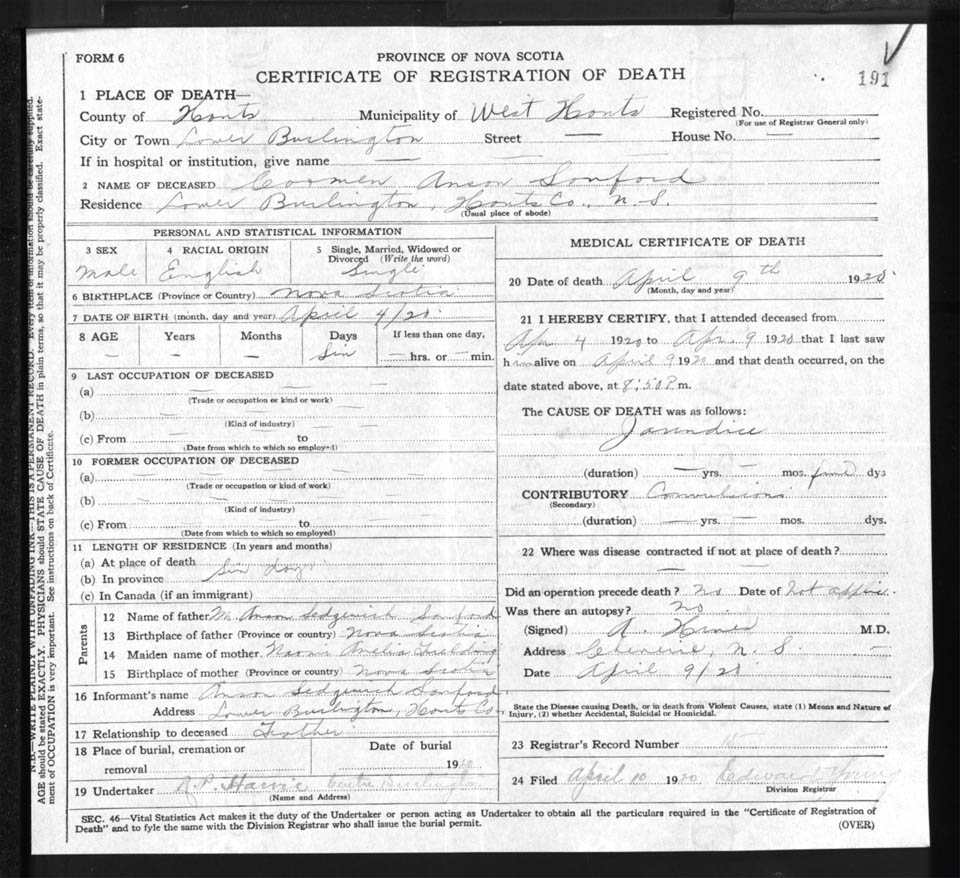 FORM 6
PROVINCE OF NOVA SCOTIA
CERTIFICATE OF REGISTRATION OF DEATH
191
1 PLACE OF DEATH—
County of Hants Municipality of West Hants Registered No.
(For use of Registrar General only)
City or Town Lower Burlington Street — House No. —
If in hospital or institution, give name — — —
2 NAME OF DECEASED Carmen Anson Sanford
Residence Lower Burlington, Hants Co., N. S.
(Usual place of abode)
PERSONAL AND STATISTICAL INFORMATION
3 SEX
Male
4 RACIAL ORIGIN
English
5 Single, Married, Widowed or Divorced (Write the word)
Single
6 BIRTHPLACE (Province or Country) Nova Scotia
7 DATE OF BIRTH (month, day and year) April 4/20
8 AGE Years Months Days If less than one day,
— — Six — hrs. or — min.
9 LAST OCCUPATION OF DECEASED
(a)
(Trade or occupation or kind or work)
(b)
(Kind of industry)
(c) From to
(Date from which to which so employed)
10 FORMER OCCUPATION OF DECEASED
(a)
(Trade or occupation or kind of work)
(b)
(Kind of industry)
(c) From to
(Date from which to which so employed)
11 LENGTH OF RESIDENCE (In years and months)
(a) At place of death
(b) In province Six days
(c) In Canada (if an immigrant)
Parents
12 Name of father M. Anson Sedgewich Sanford
13 Birthplace of father (Province or country) Nova Scotia
14 Maiden name of mother Amelia
15 Birthplace of mother (Province or country) Nova Scotia
16 Informant's name Anson Sedgewich Sanford
Address Lower Burlington, Hants Co
17 Relationship to deceased Father
18 Place of burial, cremation or removal
Date of burial
1920
19 Undertaker Burlington
(Name and Address)
MEDICAL CERTIFICATE OF DEATH
20 Date of death April 9th 1920
(Month, day and year)
21 I HEREBY CERTIFY, that I attended deceased from
Apr 4 1920 to Apr. 9 1920 that I last saw
him alive on April 9 192 and that death occurred, on the
date stated above, at 8:50 P.m.
The CAUSE OF DEATH was as follows:
Jaundice
(duration) — yrs. — mos. dys
CONTRIBUTORY Convulsions
(Secondary)
(duration) — yrs. — mos. dys.
22 Where was disease contracted if not at place of death?
— —
Did an operation precede death? No Date of
Was there an autopsy? No
(Signed) A. M.D.
Address N. S.
Date April 9/20
State the Disease causing Death, or in death from Violent Causes, state (1) Means and Nature of
Injury, (2) whether Accidental, Suicidal or Homicidal.
23 Registrar's Record Number
24 Filed April 10 1920 Edward Young
Division Registrar
SEC. 46—Vital Statistics Act makes it the duty of the Undertaker or person acting as Undertaker to obtain all the particulars required in the "Certificate of Registration of
Death" and to fyle the same with the Division Registrar who shall issue the burial permit.
(OVER)
N.B.—WRITE PLAINLY WITH UNFADING INK—THIS IS A PERMANENT RECORD. Every item of information should be carefully supplied.
AGE should be stated EXACTLY. PHYSICIANS should STATE CAUSE OF DEATH in plain terms, so that it may be properly classified. Exact state-
ment of OCCUPATION is very important. See instructions on back of Certificate.